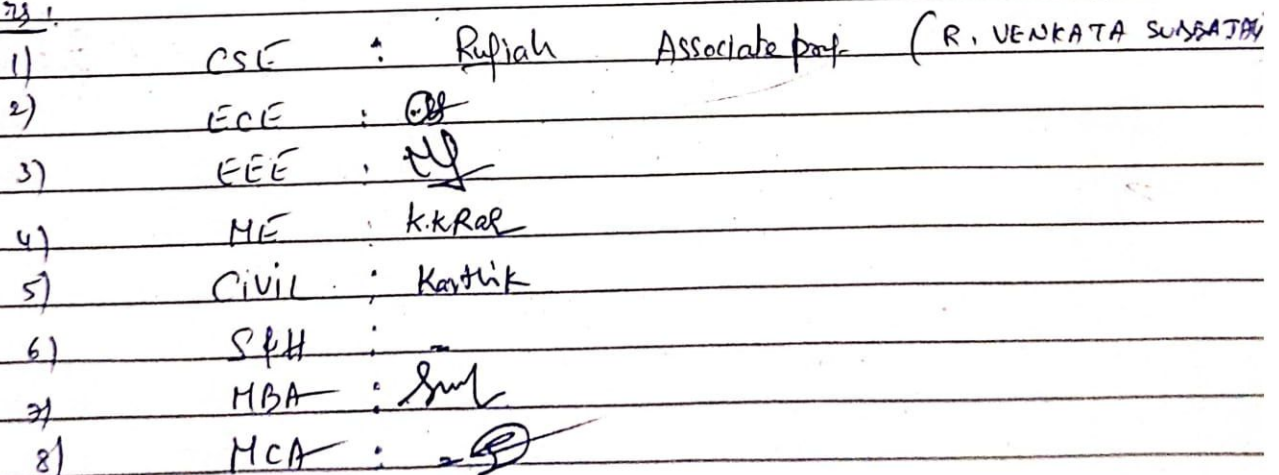 1) CSE : Rufiah Associate prof. (R. VENKATA SUBBA
2) ECE :
3) EEE :
4) ME : K.K Rao
5) CIVIL : Karthik
6) S&H : -
7) MBA :
8) MCA :